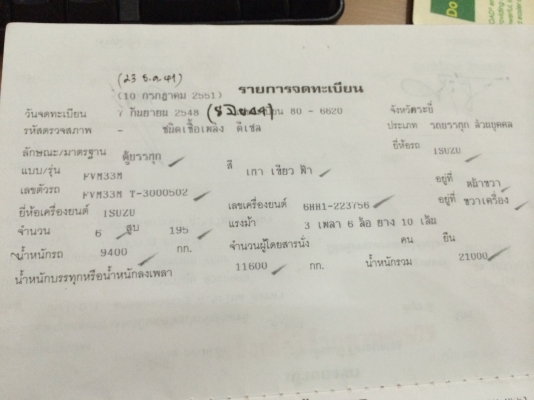 (23 ธ.ค 41)
(10 กรกฎาคม 2551) รายการจดทะเบียน
วันจดทะเบียน 7 กันยายน 2548 ทะเบียน 80 - 6620 จังหวัด
รหัสตรวจสภาพ - ชนิดเชื้อเพลิง ดีเซล ประเภท รถบรรทุก ส่วนบุคคล
ลักษณะ/มาตรฐาน ตู้บรรทุก สี เทา เขียว ฟ้า ยี่ห้อรถ ISUZU
แบบ/รุ่น FVM33M
เลขตัวรถ FVM33M T-3000502 อยู่ที่ หน้าขวา
ยี่ห้อเครื่องยนต์ ISUZU เลขเครื่องยนต์ 6HH1-223756 อยู่ที่ ขวาเครื่อง
จำนวน 6 สูบ 195 แรงม้า 3 เพลา 6 ล้อ ยาง 10 เส้น
น้ำหนักรถ 9400 กก. จำนวนผู้โดยสารนั่ง คน ยืน
น้ำหนักบรรทุกหรือน้ำหนักลงเพลา 11600 กก. น้ำหนักรวม 21000
Do